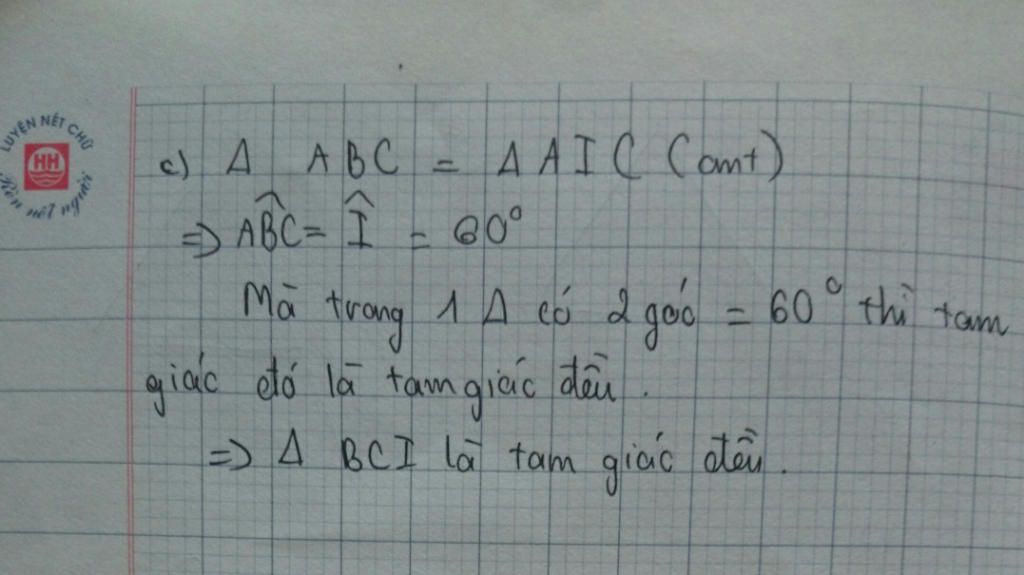 LUYỆN NẾT CHỮ
HH
Rèn nết người
c) Δ ABC = Δ AIC (cmt)
=> ABC^ = I^ = 60°
Mà trong 1 Δ có 2 góc = 60° thì tam
giác đó là tam giác đều.
=> Δ BCI là tam giác đều.